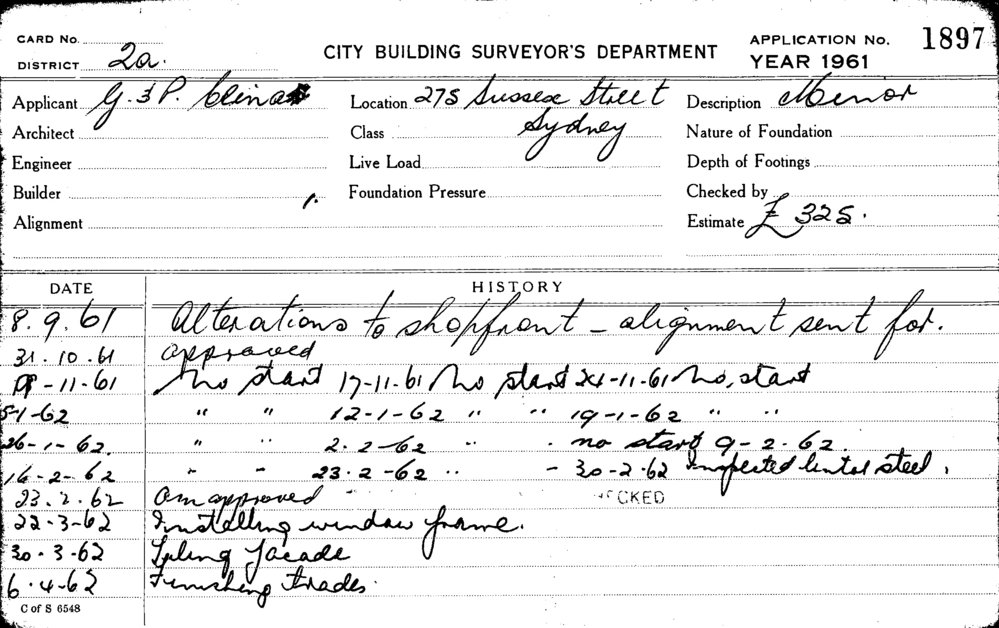 CARD No. CITY BUILDING SURVEYOR'S DEPARTMENT APPLICATION No. 1897
DISTRICT 2a. YEAR 1961
Applicant G. & P. Location 275 Sussex Street Description Minor
Architect Class Sydney Nature of Foundation
Engineer Live Load Depth of Footings
Builder Foundation Pressure Checked by
Alignment Estimate £ 325.
DATE HISTORY
8.9.61 Alterations to shopfront - alignment sent for.
31.10.61 approved
-11-61 No start 17-11-61 No start 24-11-61 No start
5-1-62 " " 12-1-62 " " 19-1-62 " "
26-1-62. " " 2.2-62 " " no start 9-2.62
16-2-62 " " 23.2-62 " - 30-2.62 Inspected lintol steel.
23.2.62 Am approved CKED
22-3-62 Installing window frame.
30.3-62 Tiling facade
6.4-62 Finishing trades.
C of S 6548